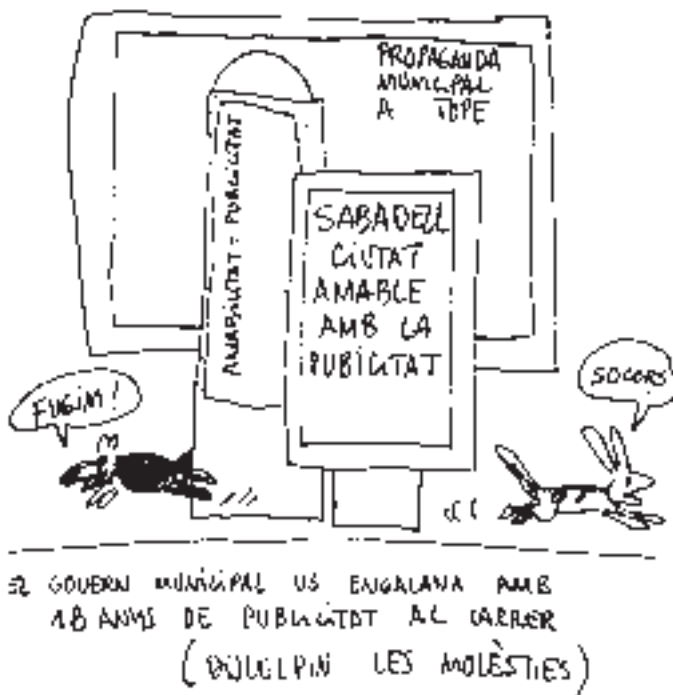 PROPAGANDA
MUNICIPAL
A TOPE
AMABILITAT - PUBLICITAT
SABADELL
CIUTAT
AMABLE
AMB LA
PUBLICITAT
FUGIM!
SOCORS
EL GOVERN MUNICIPAL US ENGALANA AMB
18 ANYS DE PUBLICITAT AL CARRER
(DISCULPIN LES MOLÈSTIES)